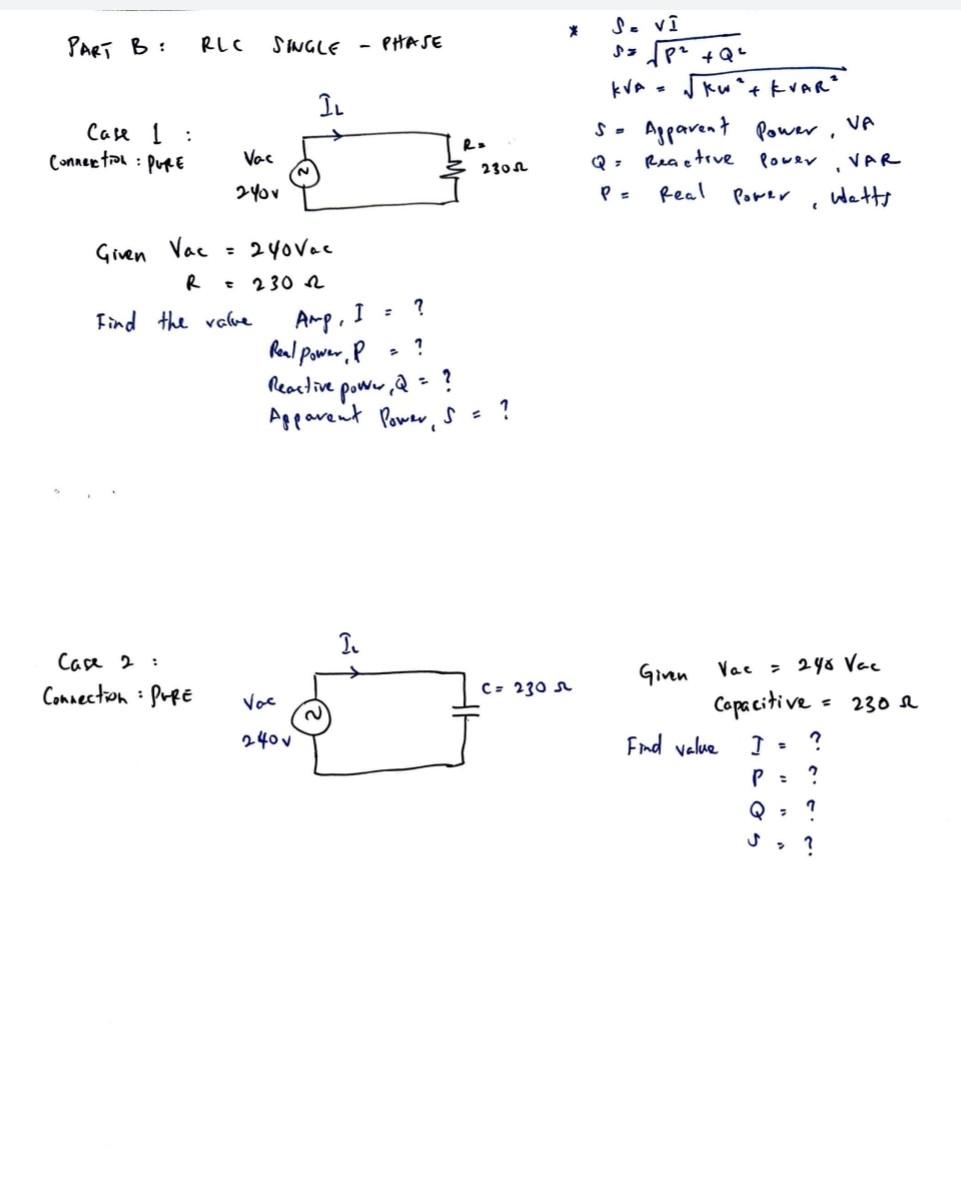 PART B : RLC SINGLE - PHASE
* S = VI
S = √P² + Q²
kVA = √kW² + kVAR²
S = Apparent Power, VA
Q = Reactive Power, VAR
P = Real Power, Watts
Case 1 :
Connection : PURE
IL
Vac
240v
R =
230Ω
Given Vac = 240Vac
R = 230 Ω
Find the value Amp, I = ?
Real power, P = ?
Reactive power, Q = ?
Apparent Power, S = ?
Case 2 :
Connection : PURE
IL
Vac
240v
C = 230 Ω
Given Vac = 240 Vac
Capacitive = 230 Ω
Find value I = ?
P = ?
Q = ?
S = ?